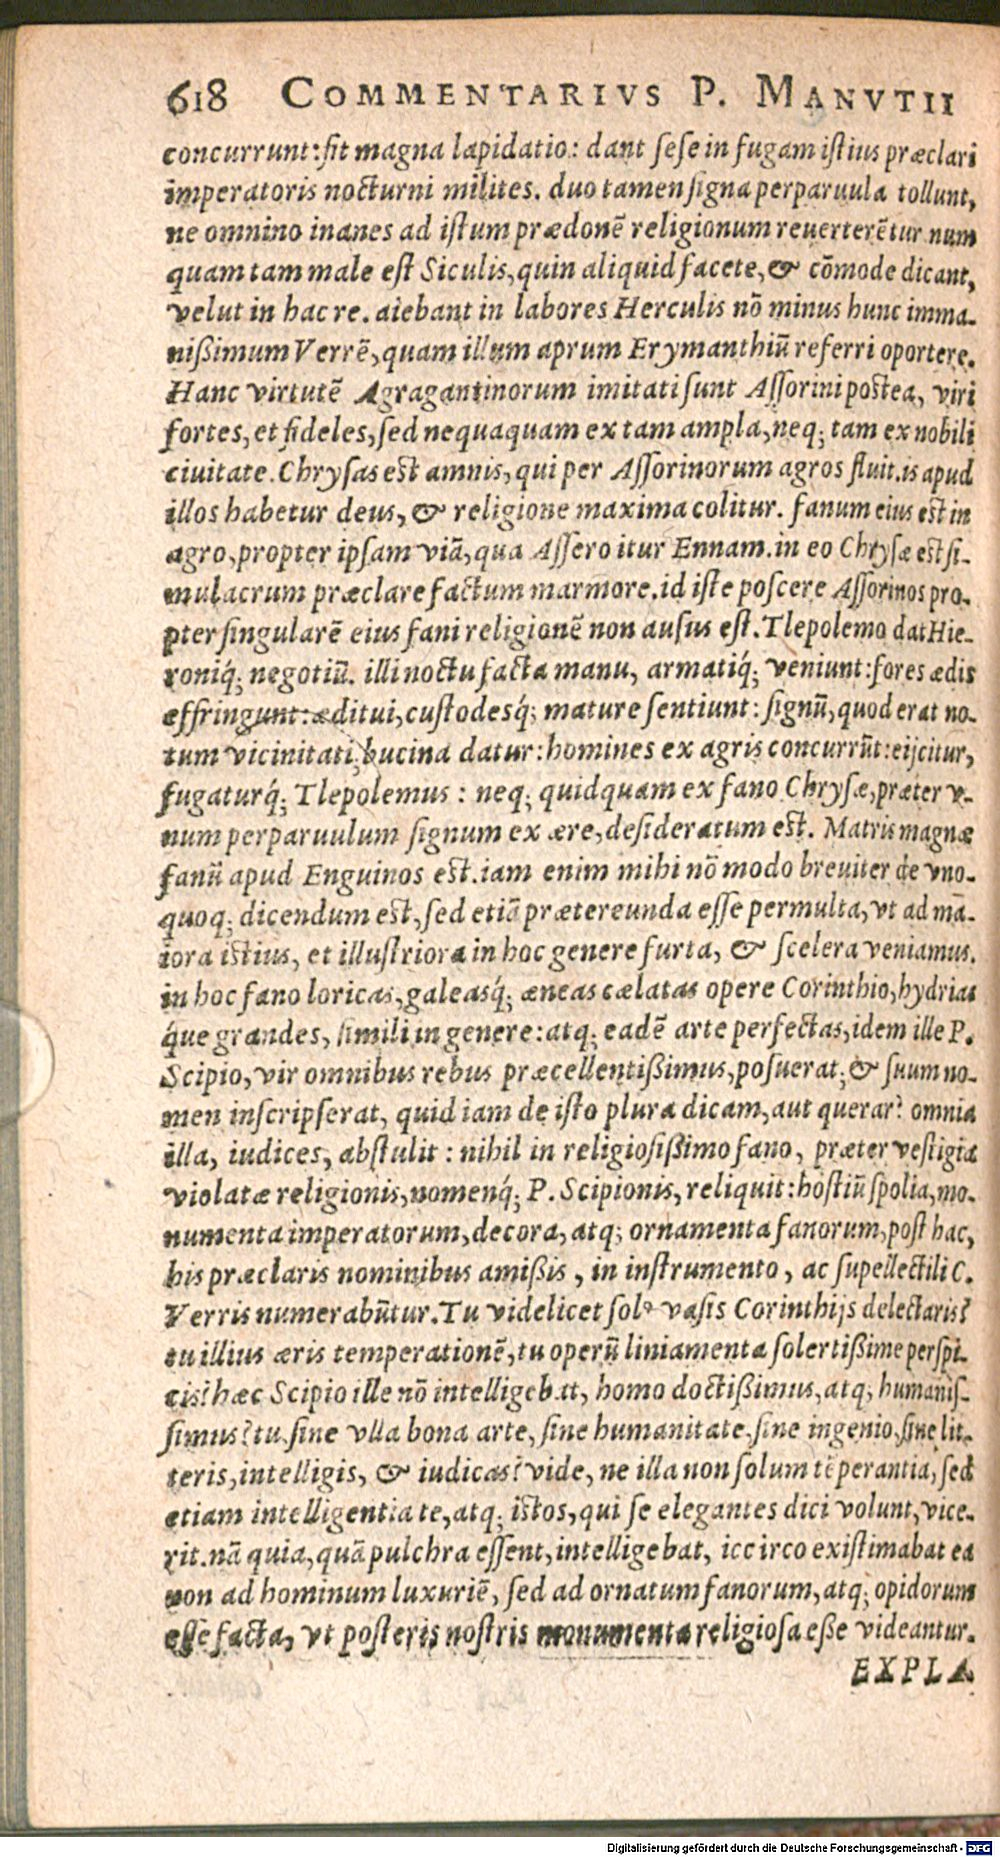 618 COMMENTARIVS P. MANVTII
concurrunt: fit magna lapidatio: dant ſeſe in fugam iſtius præclari
imperatoris nocturni milites. duo tamen ſigna perparuula tollunt,
ne omnino inanes ad iſtum prædonē religionum reuerterētur num
quam tam male eſt Siculis, quin aliquid facete, & cōmode dicant,
velut in hac re. aiebant in labores Herculis nō minus hunc imma-
nißimum Verrē, quam illum aprum Erymanthiū referri oportere.
Hanc virtutē Agragantinorum imitati ſunt Aſſorini poſtea, viri
fortes, et fideles, ſed nequaquam ex tam ampla, neq; tam ex nobili
ciuitate. Chryſas eſt amnis, qui per Aſſorinorum agros fluit. is apud
illos habetur deus, & religione maxima colitur. fanum eius eſt in
agro, propter ipſam viā, qua Aſſero itur Ennam. in eo Chryſæ eſt ſi-
mulacrum præclare factum marmore. id iſte poſcere Aſſorinos pro-
pter ſingularē eius fani religionē non auſus eſt. Tlepolemo dat Hie-
roniq́; negotiū. illi noctu facta manu, armatiq́; veniunt: fores ædis
effringunt: æditui, cuſtodesq́; mature ſentiunt: ſignū, quod erat no-
tum vicinitati, bucina datur: homines ex agris concurrūt: eijcitur,
fugaturq́; Tlepolemus: neq; quidquam ex fano Chryſæ, præter v-
num perparuulum ſignum ex ære, deſideratum eſt. Matris magnæ
fanū apud Enguinos eſt. iam enim mihi nō modo breuiter de vno-
quoq; dicendum eſt, ſed etiā prætereunda eſſe permulta, vt ad ma-
iora iſtius, et illuſtriora in hoc genere furta, & ſcelera veniamus.
in hoc fano loricas, galeasq́; æneas cælatas opere Corinthio, hydrias
q́ue grandes, ſimili in genere: atq; eadē arte perfectas, idem ille P.
Scipio, vir omnibus rebus præcellentißimus, poſuerat, & ſuum no-
men inſcripſerat, quid iam de iſto plura dicam, aut querar? omnia
illa, iudices, abſtulit: nihil in religioſißimo fano, præter veſtigia
violatæ religionis, nomenq́; P. Scipionis, reliquit: hoſtiū ſpolia, mo-
numenta imperatorum, decora, atq; ornamenta fanorum, poſt hac,
his præclaris nominibus amißis, in inſtrumento, ac ſupellectili C.
Verris numerabūtur. Tu videlicet ſolꝰ vaſis Corinthijs delectaris?
tu illius æris temperationē, tu operū liniamenta ſolertißime perſpi-
cis? hæc Scipio ille nō intelligebat, homo doctißimus, atq; humaniſ-
ſimus? tu, ſine vlla bona arte, ſine humanitate, ſine ingenio, ſine lit-
teris, intelligis, & iudicas? vide, ne illa non ſolum tēperantia, ſed
etiam intelligentia te, atq; iſtos, qui ſe elegantes dici volunt, vice-
rit. nā quia, quā pulchra eſſent, intelligebat, iccirco exiſtimabat ea
non ad hominum luxuriē, ſed ad ornatum fanorum, atq; opidorum
eſſe facta, vt poſteris noſtris monumenta religioſa eße videantur.
EXPLA
Digitalisierung gefördert durch die Deutsche Forschungsgemeinschaft - DFG